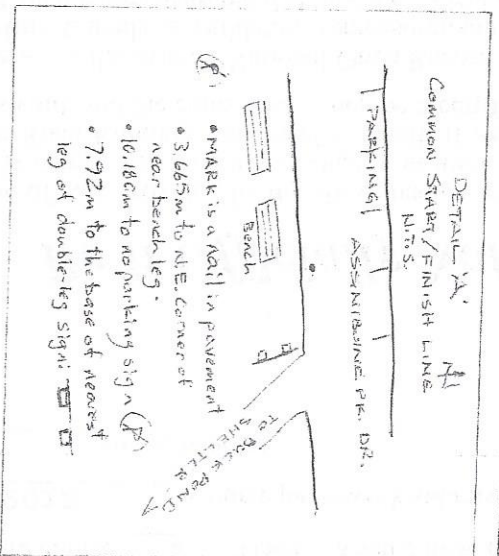 DETAIL 'A'
COMMON START/FINISH LINE
N.T.S.
N
PARKING
ASSINIBOINE PK. DR.
Bench
TO DUCK POND
SHELTER
• MARK is a nail in pavement
• 3.665m to N.E. corner of
near bench leg.
• 10.18m to no parking sign (P)
• 7.92m to the base of nearest
leg of double-leg sign:
(P)